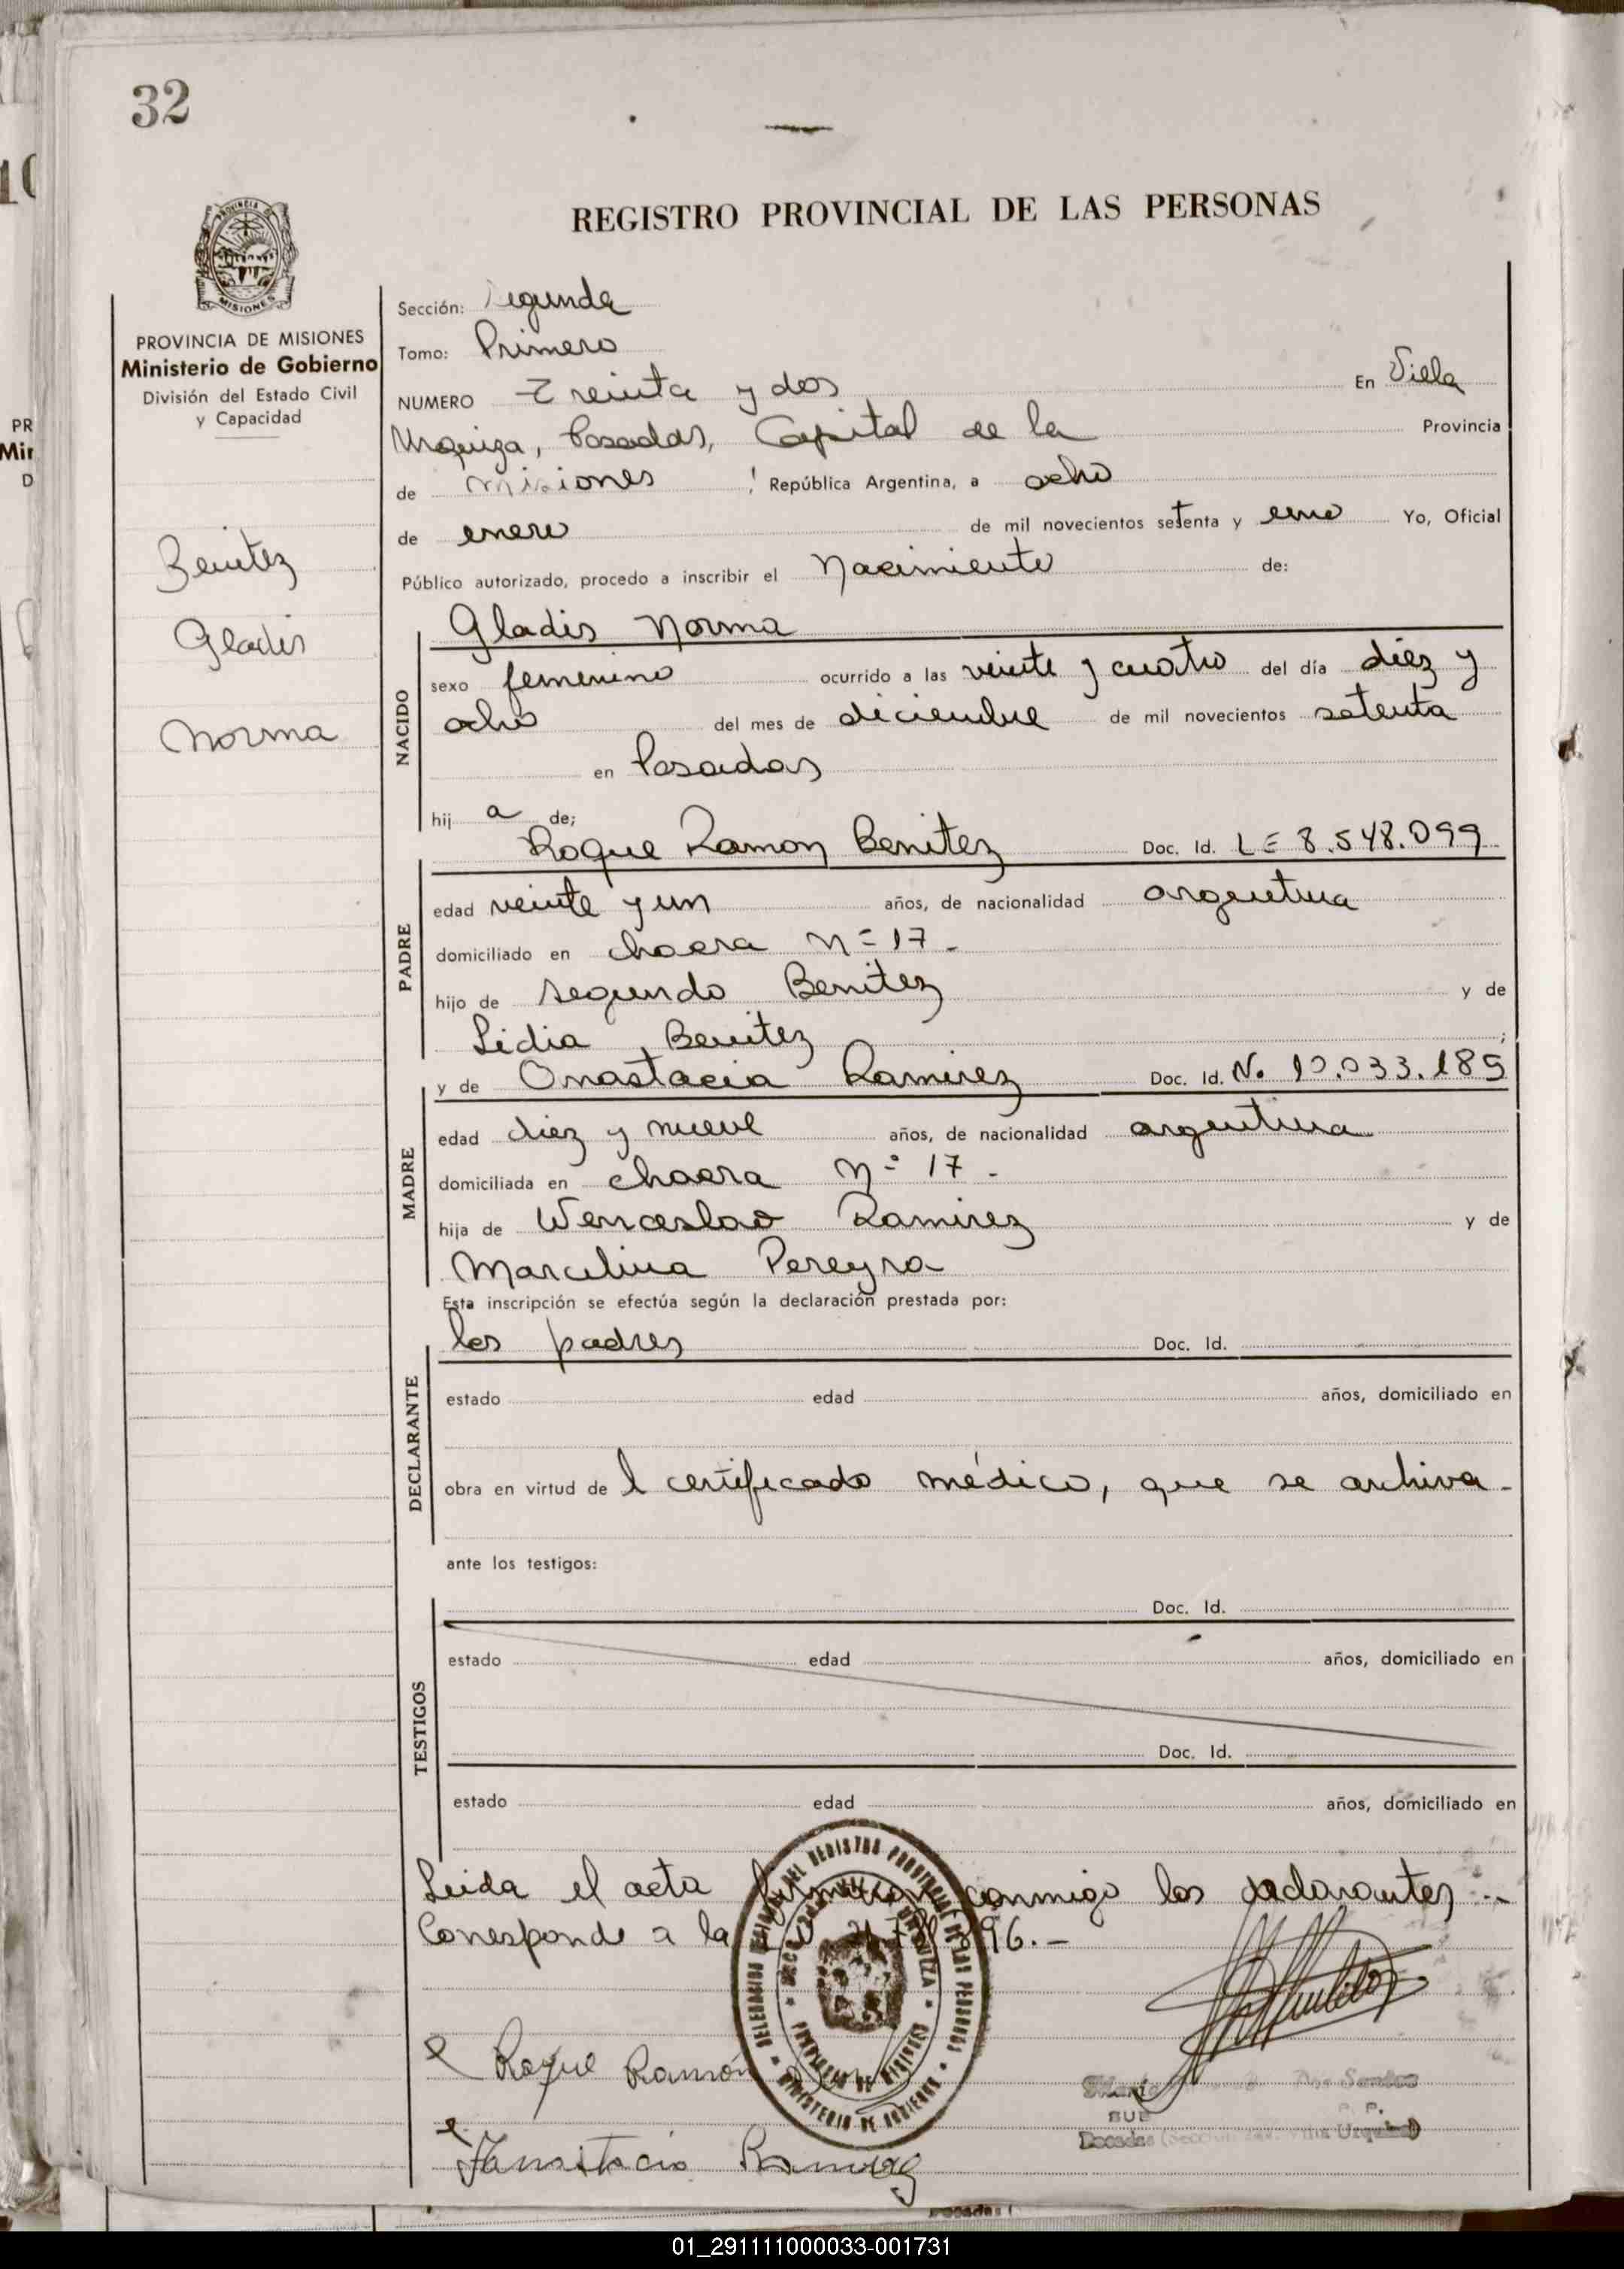 32
REGISTRO PROVINCIAL DE LAS PERSONAS
PROVINCIA DE MISIONES
Ministerio de Gobierno
División del Estado Civil
y Capacidad
Benitez
Gladis
Norma
Sección: Segunda
Tomo: Primero
NUMERO Treinta y dos En Villa
Urquiza, Posadas, Capital de la Provincia
de misiones República Argentina, a ocho
de enero de mil novecientos setenta y uno Yo, Oficial
Público autorizado, procedo a inscribir el Nacimiento de:
Gladis Norma
NACIDO
sexo femenino ocurrido a las veinte y cuatro del día diez y
ocho del mes de diciembre de mil novecientos setenta
en Posadas
hij a de;
Roque Ramon Benitez Doc. Id. LE 8.548.099
PADRE
edad veinte y un años, de nacionalidad argentina
domiciliado en chacra n=17-
hijo de Segundo Benitez y de
Lidia Benitez ;
y de Anastacia Ramirez Doc. Id. No. 10.033.185
MADRE
edad diez y nueve años, de nacionalidad argentina
domiciliada en chacra n= 17 -
hija de Wenceslao Ramirez y de
Marcelina Pereyra
Esta inscripción se efectúa según la declaración prestada por:
los padres Doc. Id.
DECLARANTE
estado edad años, domiciliado en
obra en virtud de l certificado médico, que se archiva-
ante los testigos:
Doc. Id.
TESTIGOS
estado edad años, domiciliado en
Doc. Id.
estado edad años, domiciliado en
Leida el acta firmaron conmigo los declarantes.-
Corresponde a la
DELEGACION DEL REGISTRO PROVINCIAL DE LAS PERSONAS
MINISTERIO DE GOBIERNO
PROVINCIA DE MISIONES
Roque Ramón
Anastacia Ramirez
Dos Santos
01_291111000033-001731